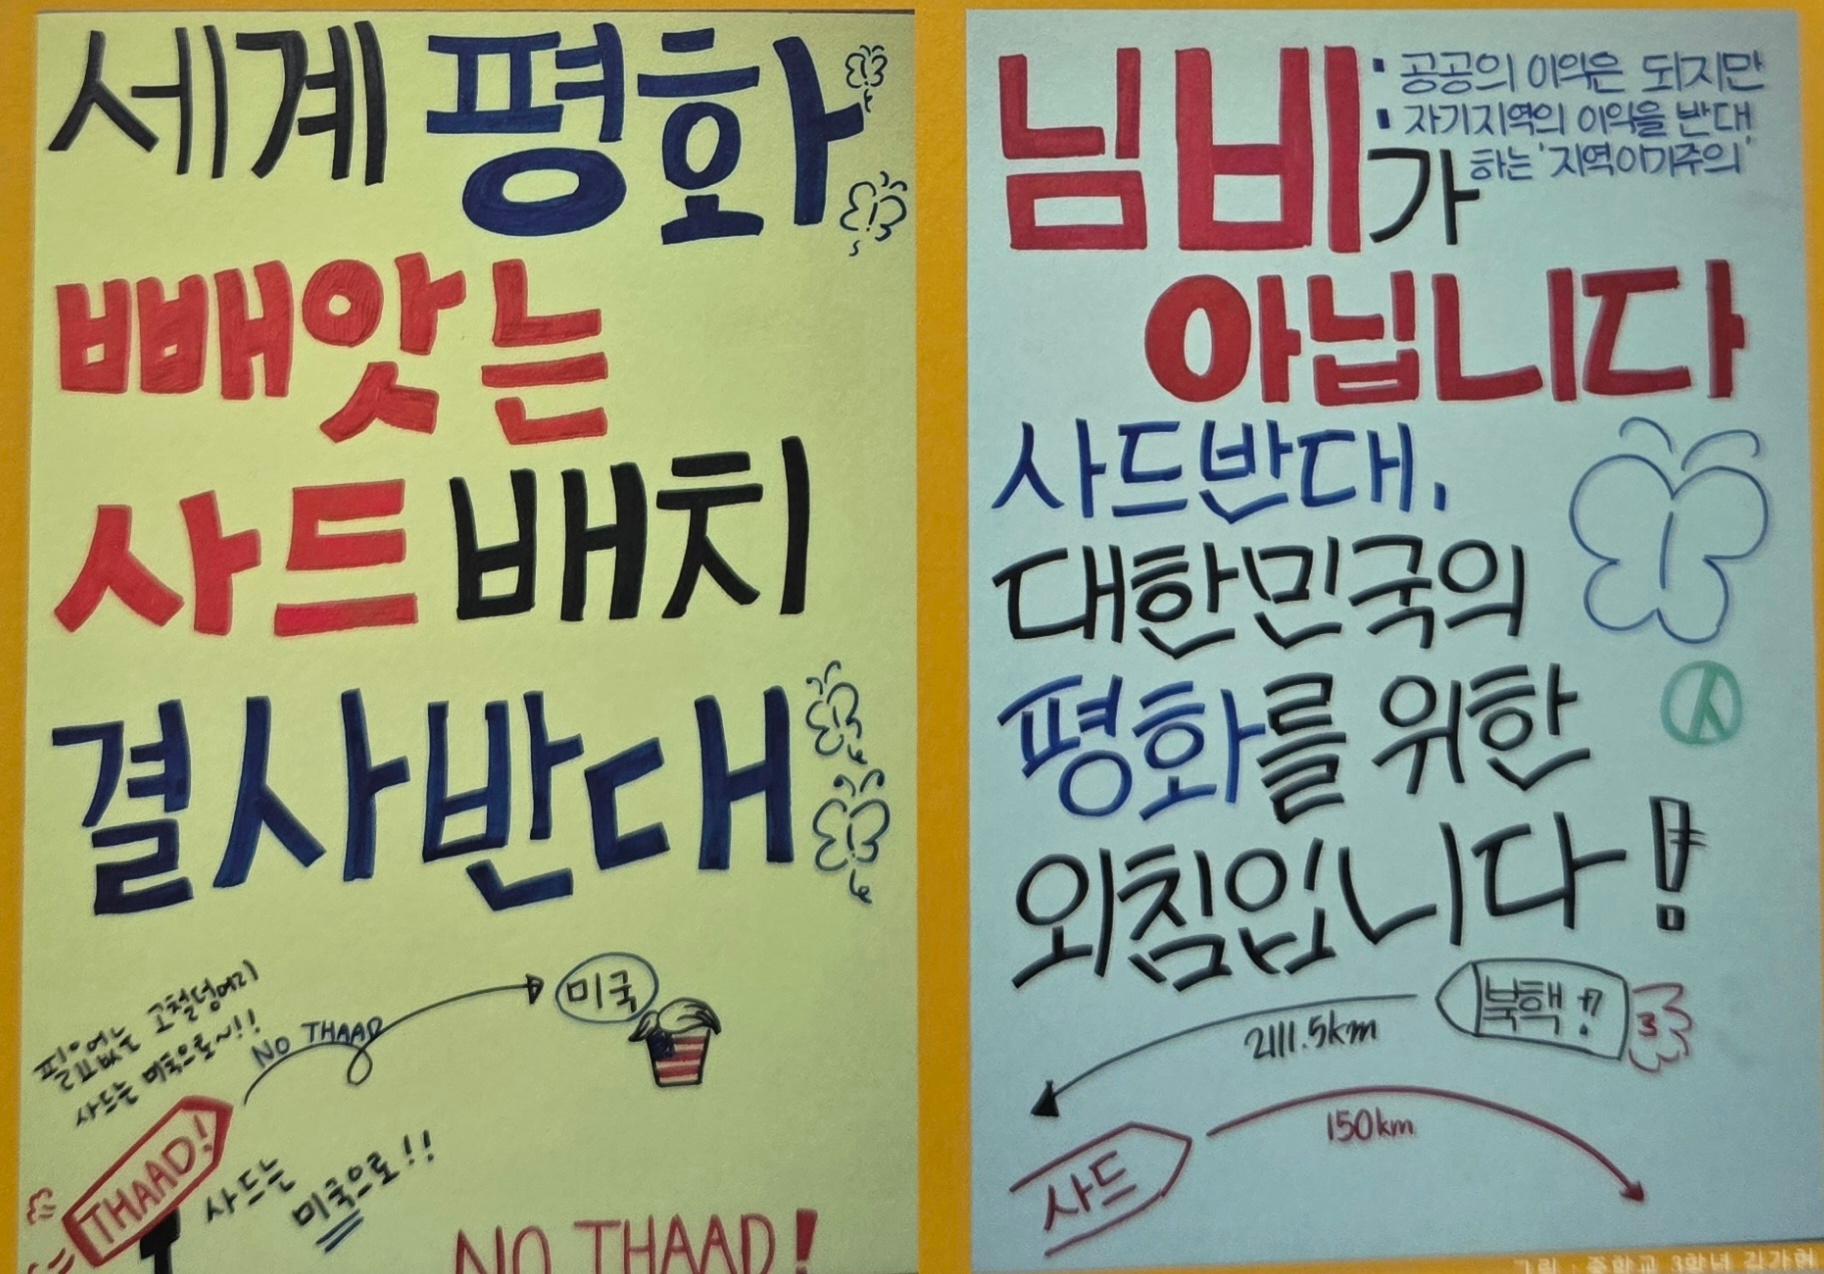 세계 평화
빼앗는
사드 배치
결사반대
필요없는 고철덩어리
사드는 미국으로~!!
NO THAAD
미국
THAAD!
사드는
미국으로!!
NO THAAD!
님비가
· 공공의 이익은 되지만
· 자기지역의 이익을 반대
하는 '지역이기주의'
아닙니다
사드반대.
대한민국의
평화를 위한
외침입니다!
북핵!?
2111.5km
150km
사드
그림 : 중학교 3학년 김가현